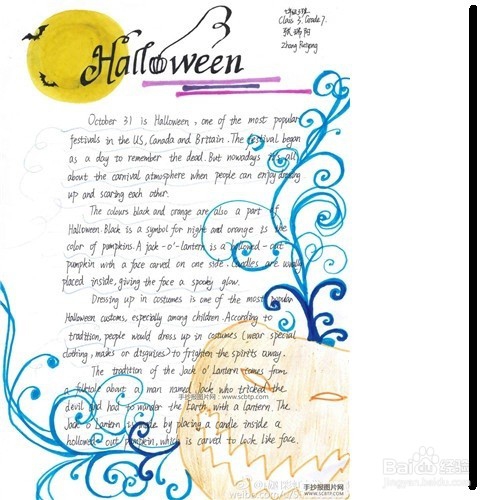 Halloween
Class 3, Grade 7.
October 31 is Halloween, one of the most popular
festivals in the US, Canada and Britain. The festival began
as a day to remember the dead. But nowadays it's all
about the carnival atmosphere when people can enjoy dressing
up and scaring each other.
The colours black and orange are also a part of
Halloween. Black is a symbol for night and orange is the
color of pumpkins. A jack-o'-lantern is a hollowed-out
pumpkin with a face carved on one side. Candles are usually
placed inside, giving the face a spooky glow.
Dressing up in costumes is one of the most popular
Halloween customs, especially among children. According to
tradition, people would dress up in costumes (wear special
clothing, masks or disguises) to frighten the spirits away.
The tradition of the Jack o' Lantern comes from
a folktale about a man named Jack who tricked the
devil and had to wander the Earth with a lantern. The
Jack o' Lantern is made by placing a candle inside a
hollowed out pumpkin, which is carved to look like face.
手抄报图片网
www.scbtp.com
手抄报图片网
www.scbtp.com
Baidu经验
jingyan.baidu.com